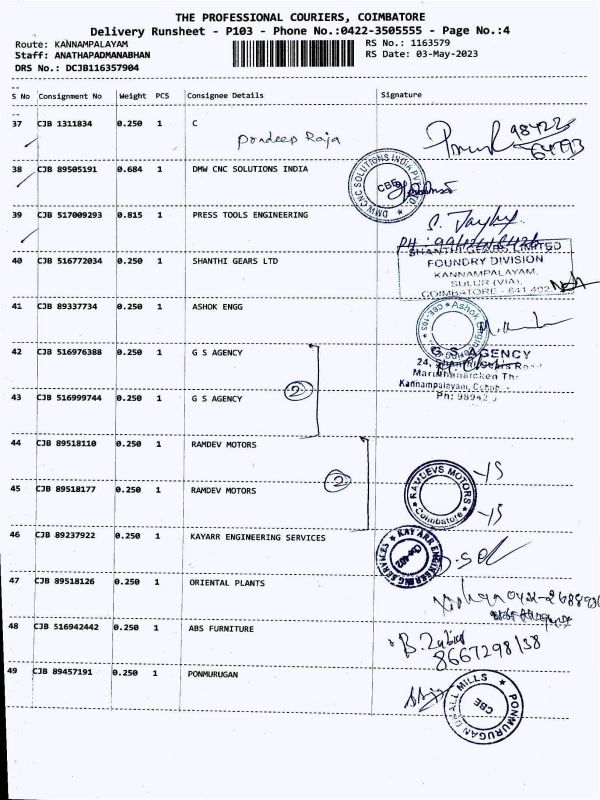 THE PROFESSIONAL COURIERS, COIMBATORE
Delivery Runsheet - P103 - Phone No.:0422-3505555 - Page No.:4
Route: KANNAMPALAYAM RS No.: 1163579
Staff: ANATHAPADMANABHAN RS Date: 03-May-2023
DRS No.: DCJB116357904
S No Consignment No Weight PCS Consignee Details Signature
37 CJB 1311834 0.250 1 C
Pordeep Raja
38 CJB 89505191 0.684 1 DMW CNC SOLUTIONS INDIA
DMW CNC SOLUTIONS INDIA PVT
CBE
39 CJB 517009293 0.815 1 PRESS TOOLS ENGINEERING
40 CJB 516772034 0.250 1 SHANTHI GEARS LTD
SHANTHI GEARS LIMITED
FOUNDRY DIVISION
KANNAMPALAYAM,
SULUR (VIA),
COIMBATORE - 641 402
41 CJB 89337734 0.250 1 ASHOK ENGG
Ashok
42 CJB 516976388 0.250 1 G S AGENCY
G.S. AGENCY
24, Shanthi Gears Road
Kannampalayam,
43 CJB 516999744 0.250 1 G S AGENCY
2
44 CJB 89518110 0.250 1 RAMDEV MOTORS
45 CJB 89518177 0.250 1 RAMDEV MOTORS
2
RAMDEVS MOTORS
Coimbatore
46 CJB 89237922 0.250 1 KAYARR ENGINEERING SERVICES
KAY ARR ENGINEERING SERVICES
47 CJB 89518126 0.250 1 ORIENTAL PLANTS
48 CJB 516942442 0.250 1 ABS FURNITURE
8667298138
49 CJB 89457191 0.250 1 PONMURUGAN
PONMURUGAN DHALL MILLS
CBE